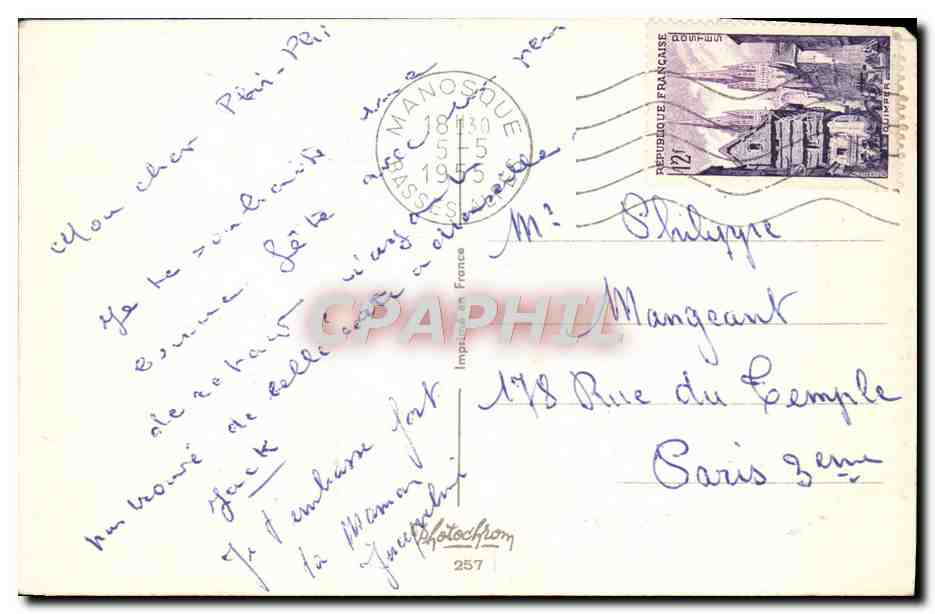 Mon cher Péri-Péri
Je te souhaite une
bonne fête avec un peu
de retard n'ayant
pas trouvé de belle carte à Marseille
Jack
Je t'embrasse fort
ta Maman
Jacqueline
MANOSQUE
18 H30
5-5
1955
BASSES-ALPES
RÉPUBLIQUE FRANÇAISE
POSTES
QUIMPER
12f
Imprimé en France
Mr Philippe
Mangeant
178 Rue du Temple
Paris 3eme
CPAPHIL
Photochrom
257